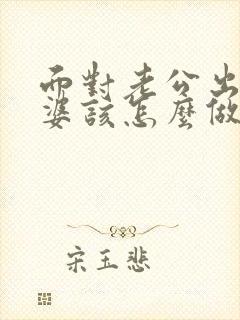 而對老公出
婆該怎麼做
宋玉悲